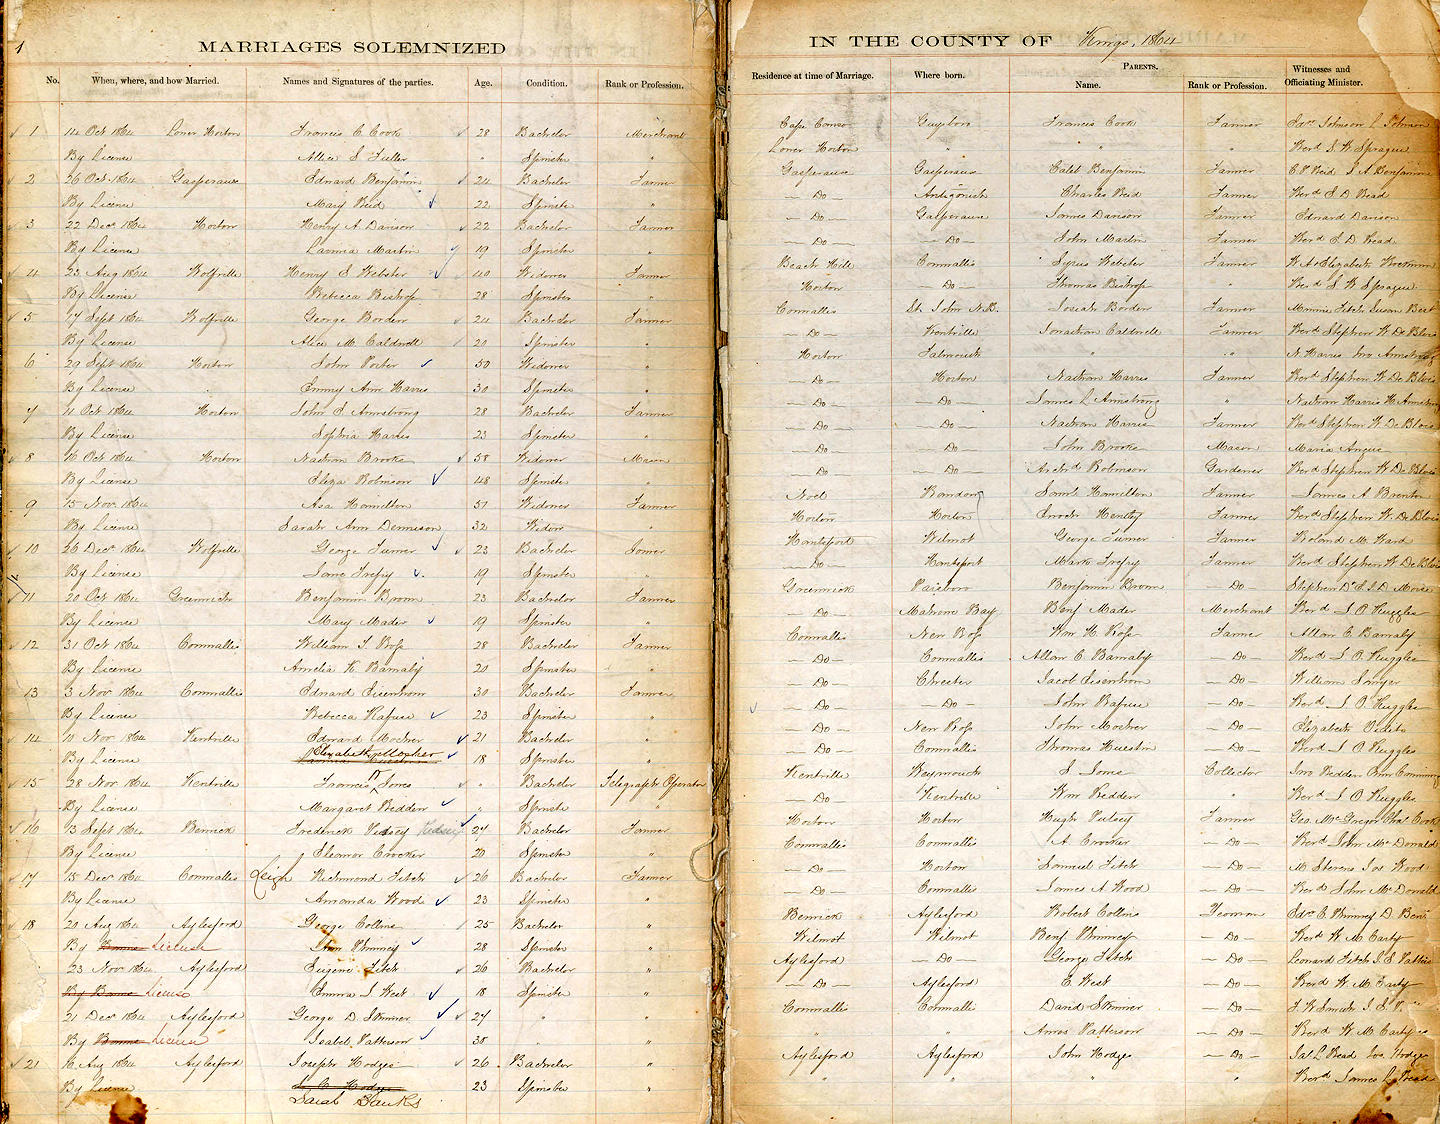 1
MARRIAGES SOLEMNIZED IN THE COUNTY OF Kings, 1864
No. When, where, and how Married. Names and Signatures of the parties. Age. Condition. Rank or Profession. Residence at time of Marriage. Where born. PARENTS. Name. Rank or Profession. Witnesses and Officiating Minister.
1 14 Oct 1864 Lower Horton Francis C Cook 28 Bachelor Merchant Cape Canso Guysboro Francis Cook Farmer
By License Allice S Fuller " Spinster " Lower Horton " " " Revd S W Sprague
2 26 Oct 1864 Gasperaux Edward Benjamin 24 Bachelor Farmer Gasperaux Gasperaux Caleb Benjamin Farmer C P Reid J A Benjamin
By License Mary Reid 22 Spinster " — Do — Antigonish Charles Reid Farmer Revd S D Read
3 22 Decr 1864 Horton Henry A Davison 22 Bachelor Farmer — Do — Gasperaux James Davison Farmer Edward Davison
By License Lavinia Martin 19 Spinster " — Do — — Do — John Martin Farmer Revd S D Read
4 23 Aug 1864 Wolfville Henry E Webster 40 Widower Farmer Beach Hill Cornwallis Syrus Webster Farmer W A Elizabeth
By License Rebecca Bishop 28 Spinster " Horton — Do — Thomas Bishop " Revd S W Sprague
5 17 Sept 1864 Wolfville George Borden 24 Bachelor Farmer Cornwallis St. John N.B. Josiah Borden Farmer Minnie Fitch Susan Best
By License Alice M Caldwell 20 Spinster " — Do — Kentville Jonathan Caldwell Farmer Revd Stephen W De Blois
6 29 Sept 1864 Horton John Porter 50 Widower " Horton Falmouth " " N Harris Jno Armstrong
By License Emmy Ann Harris 30 Spinster " — Do — Horton Nathan Harris Farmer Revd Stephen W De Blois
7 11 Oct 1864 Horton John S Armstrong 28 Bachelor Farmer — Do — — Do — James L Armstrong " Nathan Harris H Armstrong
By License Sophia Harris 23 Spinster " — Do — — Do — Nathan Harris Farmer Revd Stephen W De Blois
8 16 Oct 1864 Horton Nathan Brooks 58 Widower Mason — Do — — Do — John Brooks Mason Maria Angus
By License Eliza Robinson 48 Spinster " — Do — — Do — Archd Robinson Gardener Revd Stephen W De Blois
9 15 Nov 1864 Asa Hamilton 51 Widower Farmer Noel Saml Hamilton Farmer James A
By License Sarah Ann Dennison 32 Widow " Horton Horton Enoch Farmer Revd Stephen W De Blois
10 26 Decr 1864 Wolfville George Turner 23 Bachelor Hantsport Wilmot George Turner Farmer Roland M Ward
By License Jane Trefry 19 Spinster " — Do — Hantsport Mark Trefry Farmer Revd Stephen W De Blois
11 20 Oct 1864 Greenwich Benjamin Brown 23 Bachelor Farmer Greenwich Parsboro Benjamin Brown — Do — Stephen
By License Mary Mader 19 Spinster " — Do — Mahone Bay Benj Mader Merchant Revd J O Ruggles
12 31 Oct 1864 Cornwallis William T Ross 28 Bachelor Farmer Cornwallis New Ross Wm H Ross Farmer Allan C Barnaby
By License Amelia K Barnaby 20 Spinster " — Do — Cornwallis Allan C Barnaby — Do — Revd J O Ruggles
13 3 Nov 1864 Cornwallis Edward Eisenhom 30 Bachelor Farmer — Do — Chester Jacob Eisenhom — Do — William
By License Rebecca Rafuse 23 Spinster " — Do — — Do — John Rafuse — Do — Revd J O Ruggles
14 11 Nov 1864 Kentville Edward Mocher 21 Bachelor " — Do — New Ross John Mocher — Do — Elizabeth
By License Elizabeth 18 Spinster " — Do — Cornwallis Thomas — Do — Revd J O Ruggles
15 28 Nov 1864 Kentville Francis Jones " Bachelor Telegraph Operator Kentville Weymouth S Jones Collector Jno Redden
By License Margaret Redden " Spinster " — Do — Kentville Wm Redden " Revd J O Ruggles
16 13 Sept 1864 Berwick Frederick Pelsey 27 Bachelor Farmer Horton Horton Hugh Pelsey Farmer Geo. McGregor Chas Cook
By License Eleanor Crocker 20 Spinster " Cornwallis Cornwallis A Crocker — Do — Revd John McDonald
17 15 Decr 1864 Cornwallis Leigh Richmond Fitch 26 Bachelor Farmer — Do — Horton Samuel Fitch — Do — M Stevens Jos Wood
By License Amanda Wood 23 Spinster " — Do — Cornwallis James A Wood — Do — Revd John McDonald
18 20 Aug 1864 Aylesford George Collins 25 Bachelor " Berwick Aylesford Robert Collins Yeoman Edw C Phinney
By Banns License Ann Phinney 28 Spinster " Wilmot Wilmot Benj Phinney — Do — Revd W McCarty
23 Nov 1864 Aylesford Eugene Fitch 26 Bachelor " Aylesford — Do — George Fitch — Do — Leonard Fitch
By Banns License Emma J West 18 Spinster " — Do — Aylesford E West — Do — Revd W McCarty
21 Decr 1864 Aylesford George D. Skinner 27 " " Cornwallis Cornwallis David Skinner — Do —
By Banns License Isabel Patterson 30 " " " " Amos Patterson — Do — Revd W McCarty
21 16 Aug 1864 Aylesford Joseph Hodges 26 Bachelor " Aylesford Aylesford John Hodges — Do — Jas Hodges
By License Sarah Banks 23 Spinster " " " " " Revd James L Read